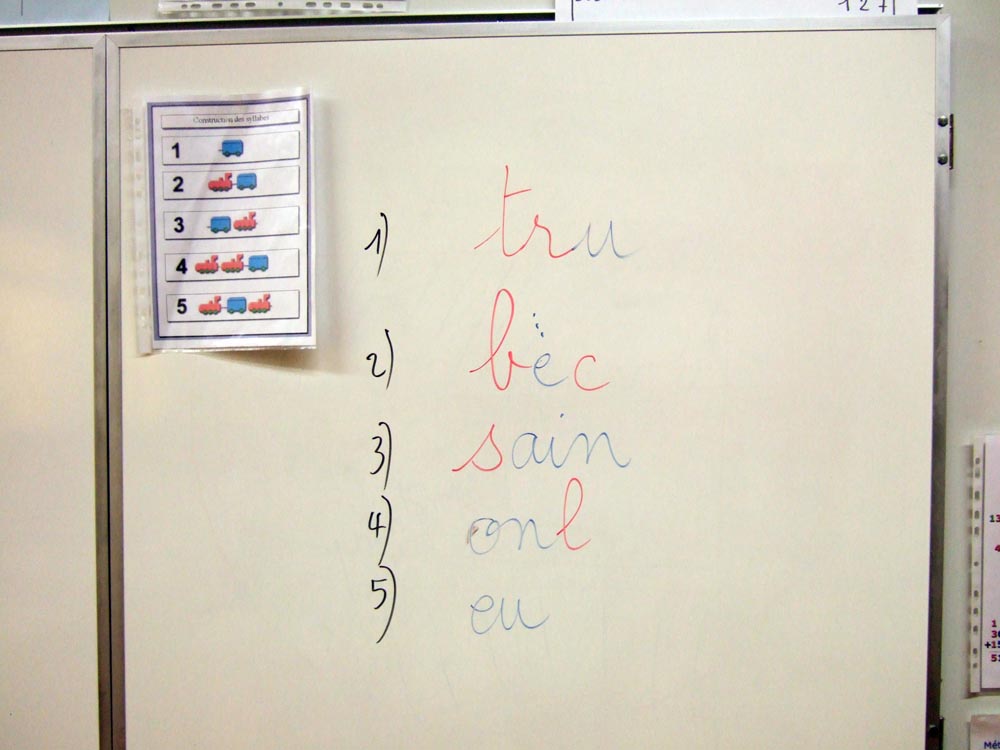 127
Construction des syllabes
1
2
3
4
5
1) tru
2) bëc
3) sain
4) onl
5) eu
13
4
1
+15
Mé